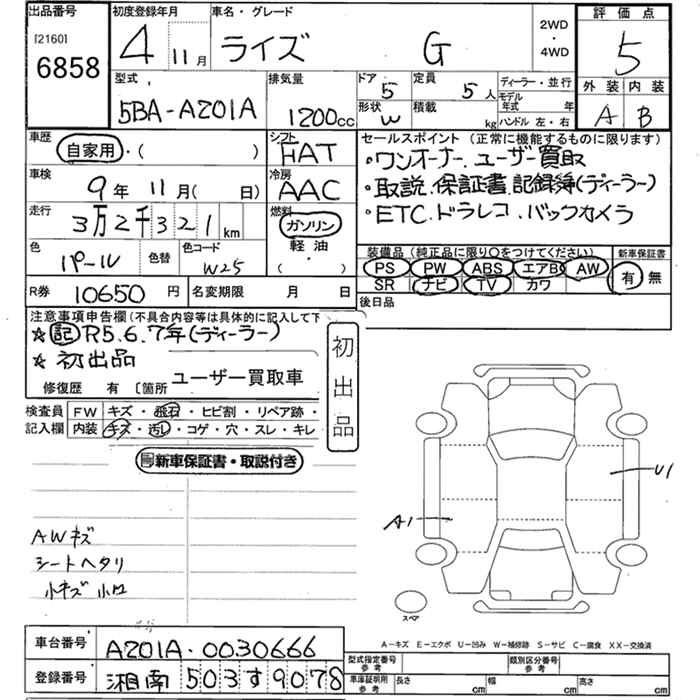 出品番号 初度登録年月 車名・グレード 2WD・4WD 評価点
[2160] 6858 4 11月 ライズ G 5
型式 排気量 ドア 5 定員 5人 ディーラー・並行 外装 内装
5BA-A201A 1200cc 形状 W 積載 kg モデル年式 年 ハンドル 左・右 A B
車歴 自家用・( ) シフト FAT セールスポイント (正常に機能するものに限ります)
・ワンオーナー、ユーザー買取
車検 9年 11月( 日) 冷房 AAC ・取説、保証書、記録簿(ディーラー)
走行 3万2千321km 燃料 ガソリン 軽油・( ) ・ETC、ドラレコ、バックカメラ
色 パール 色替 色コード W25
装備品 (純正品に限り○をつけてください) 新車保証書
PS PW ABS エアB AW 有 無
SR ナビ TV カワ
R券 10650円 名変期限 月 日 後日品
注意事項申告欄(不具合内容等は具体的に記入して下
☆記 R5.6.7年(ディーラー)
☆初出品
初出品
修復歴 有 〔箇所 ユーザー買取車
検査員記入欄 FW キズ・飛石・ヒビ割・リペア跡・
内装 キズ・汚レ・コゲ・穴・スレ・キレ
新車保証書・取説付き
U1
A1
AWキズ
シートヘタリ
小キズ 小凹
スペア
A-キズ E-エクボ U-凹み W-補修跡 S-サビ C-腐食 XX-交換済
車台番号 A201A-0030666
型式指定番号 参考 類別区分番号 参考
登録番号 湘南 503す9078
車庫証明用 参考 長さ cm 幅 cm 高さ cm